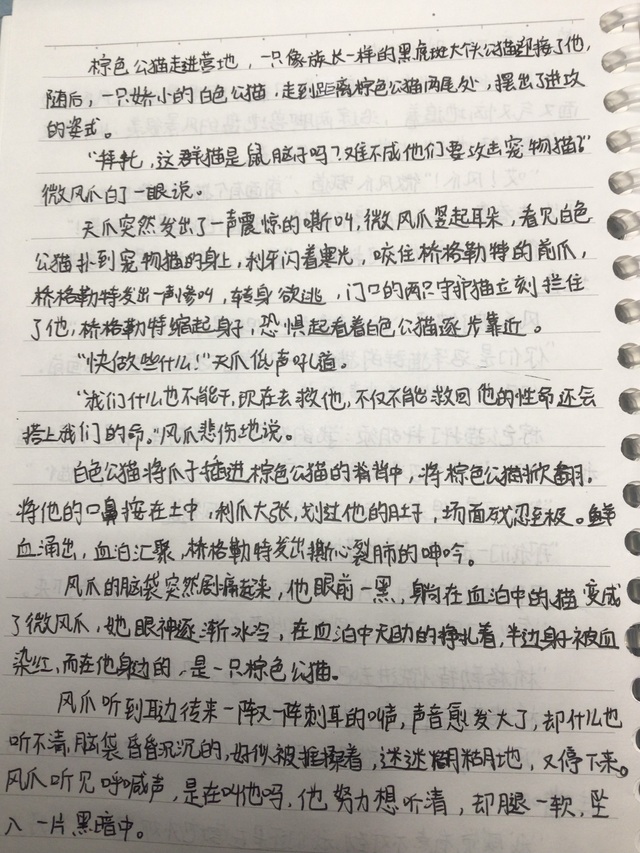 棕色公猫走进营地，一只像族长一样的黑虎斑大个公猫迎接了他，
随后，一只娇小的白色公猫，走到距离棕色公猫两尾处，摆出了进攻
的姿式。
“拜托，这群猫是鼠脑子吗？难不成他们要攻击宠物猫？”
微风爪白了一眼说。
天爪突然发出了一声震惊的嘶叫，微风爪竖起耳朵，看见白色
公猫扑到宠物猫的身上，利牙闪着寒光，咬住桥格勒特的前爪，
桥格勒特发出一声惨叫，转身欲逃，门口的两只守护猫立刻拦住
了他，桥格勒特缩起身子，恐惧起看着白色公猫逐步靠近。
“快做些什么！”天爪低声吼道。
“我们什么也不能干，现在去救他，不仅不能救回他的性命还会
搭上我们的命。”风爪悲伤地说。
白色公猫将爪子插进棕色公猫的脊背中，将棕色公猫掀翻，
将他的口鼻按在土中，利爪大张，划过他的肚子，场面残忍至极。鲜
血涌出，血泊汇聚，桥格勒特发出撕心裂肺的呻吟。
风爪的脑袋突然剧痛起来，他眼前一黑，躺在血泊中的猫变成
了微风爪，她眼神逐渐冰冷，在血泊中无助的挣扎着，半边身子被血
染红，而在他身边的，是一只棕色公猫。
风爪听到耳边传来一阵又一阵刺耳的叫声，声音愈发大了，却什么也
听不清，脑袋昏昏沉沉的，好似被摇摆着，迷迷糊糊地，又停下来。
风爪听见呼喊声，是在叫他吗，他努力想听清，却腿一软，坠
入一片黑暗中。